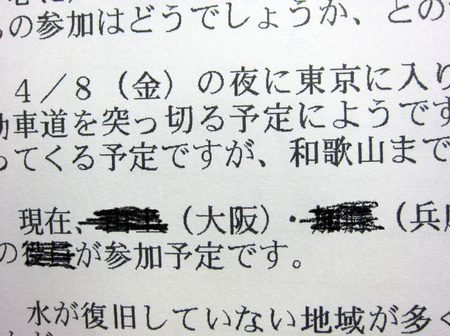 の参加はどうでしょうか、との
4/8(金)の夜に東京に入り
動車道を突っ切る予定にようです
ってくる予定ですが、和歌山まで
現在、(大阪)・(兵庫
のが参加予定です。
水が復旧していない地域が多く